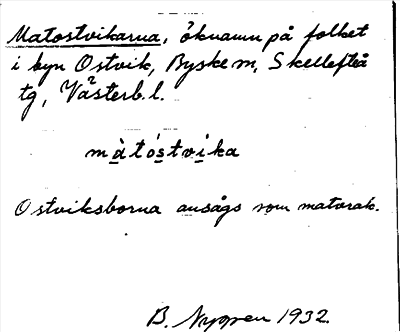 Matostvikarna, öknamn på folket
i byn Ostvik, Byske m, Skellefteå
tg, Västerb. l.
màtóstvika
Ostviksborna ansågs som matvrak.
B. Nygren 1932.